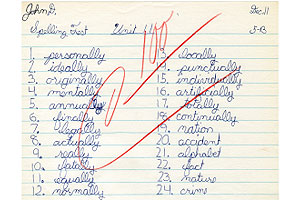 John D.
Dec. 11
Spelling Test Unit
5-B
100
1. personally
2. ideally
3. originally
4. mentally
5. annually
6. finally
7. legally
8. actually
9. really
10. fatally
11. equally
12. normally
13. locally
14. punctually
15. individually
16. artificially
17. totally
18. continually
19. nation
20. accident
21. alphabet
22. fact
23. nature
24. crime